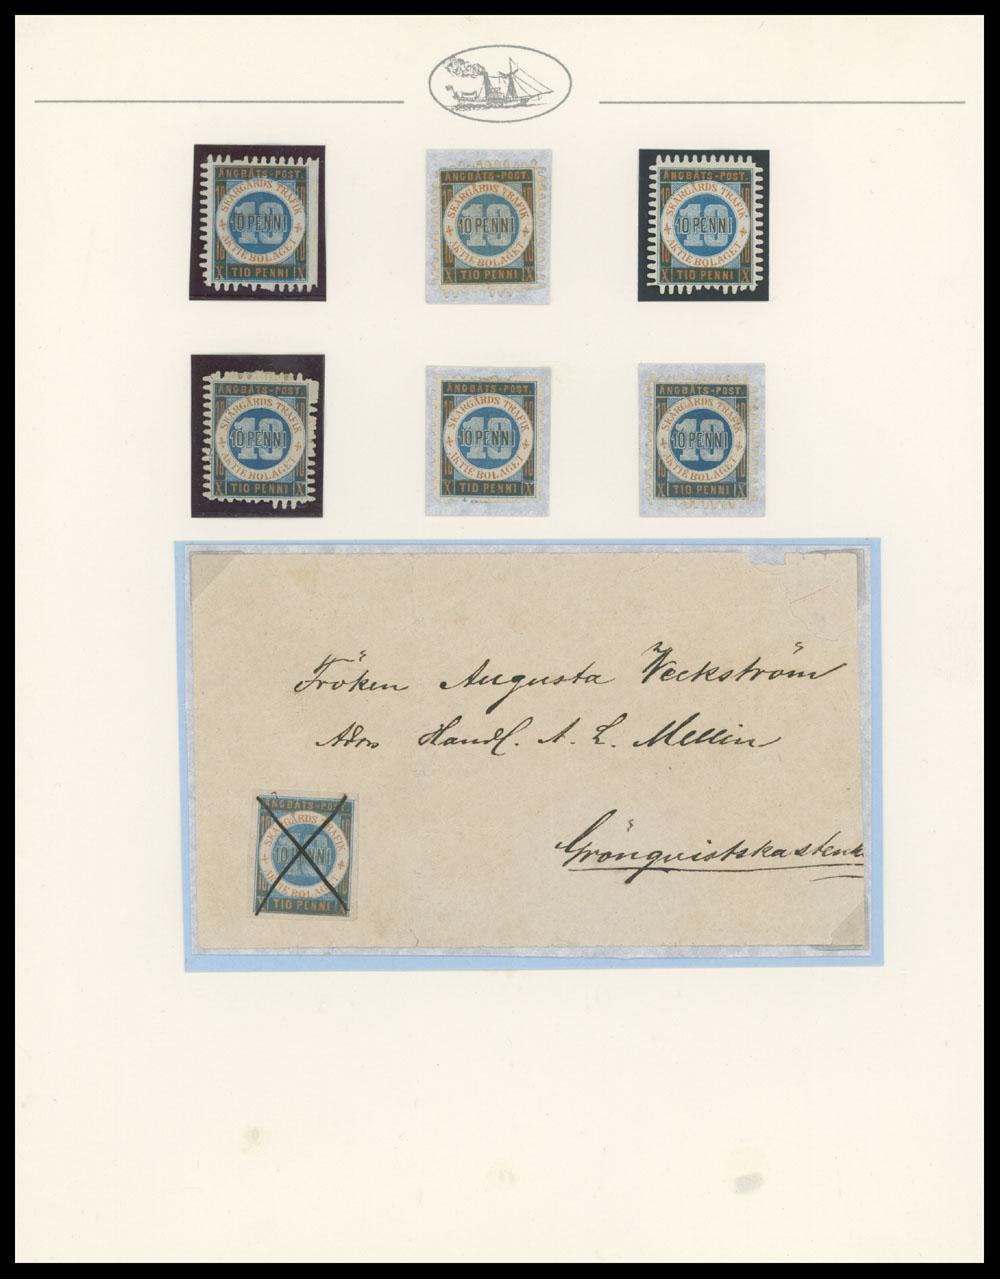 ÅNGBÅTS-POST.
SKÄRGÅRDS TRAFIK
10 10
10 PENNI
AKTIE BOLAGET
X TIO PENNI X
ÅNGBÅTS-POST.
SKÄRGÅRDS TRAFIK
10 10
10 PENNI
AKTIE BOLAGET
X TIO PENNI X
ÅNGBÅTS-POST.
SKÄRGÅRDS TRAFIK
10 10
10 PENNI
AKTIE BOLAGET
X TIO PENNI X
ÅNGBÅTS-POST.
SKÄRGÅRDS TRAFIK
10 10
10 PENNI
AKTIE BOLAGET
X TIO PENNI X
ÅNGBÅTS-POST.
SKÄRGÅRDS TRAFIK
10 10
10 PENNI
AKTIE BOLAGET
X TIO PENNI X
ÅNGBÅTS-POST.
SKÄRGÅRDS TRAFIK
10 10
10 PENNI
AKTIE BOLAGET
X TIO PENNI X
Fröken Augusta Veckström
Adrs Handl. A. L. Mellin
Grönqvistska stenh
ÅNGBÅTS-POST.
SKÄRGÅRDS TRAFIK
10 10
10 PENNI
AKTIE BOLAGET
X TIO PENNI X